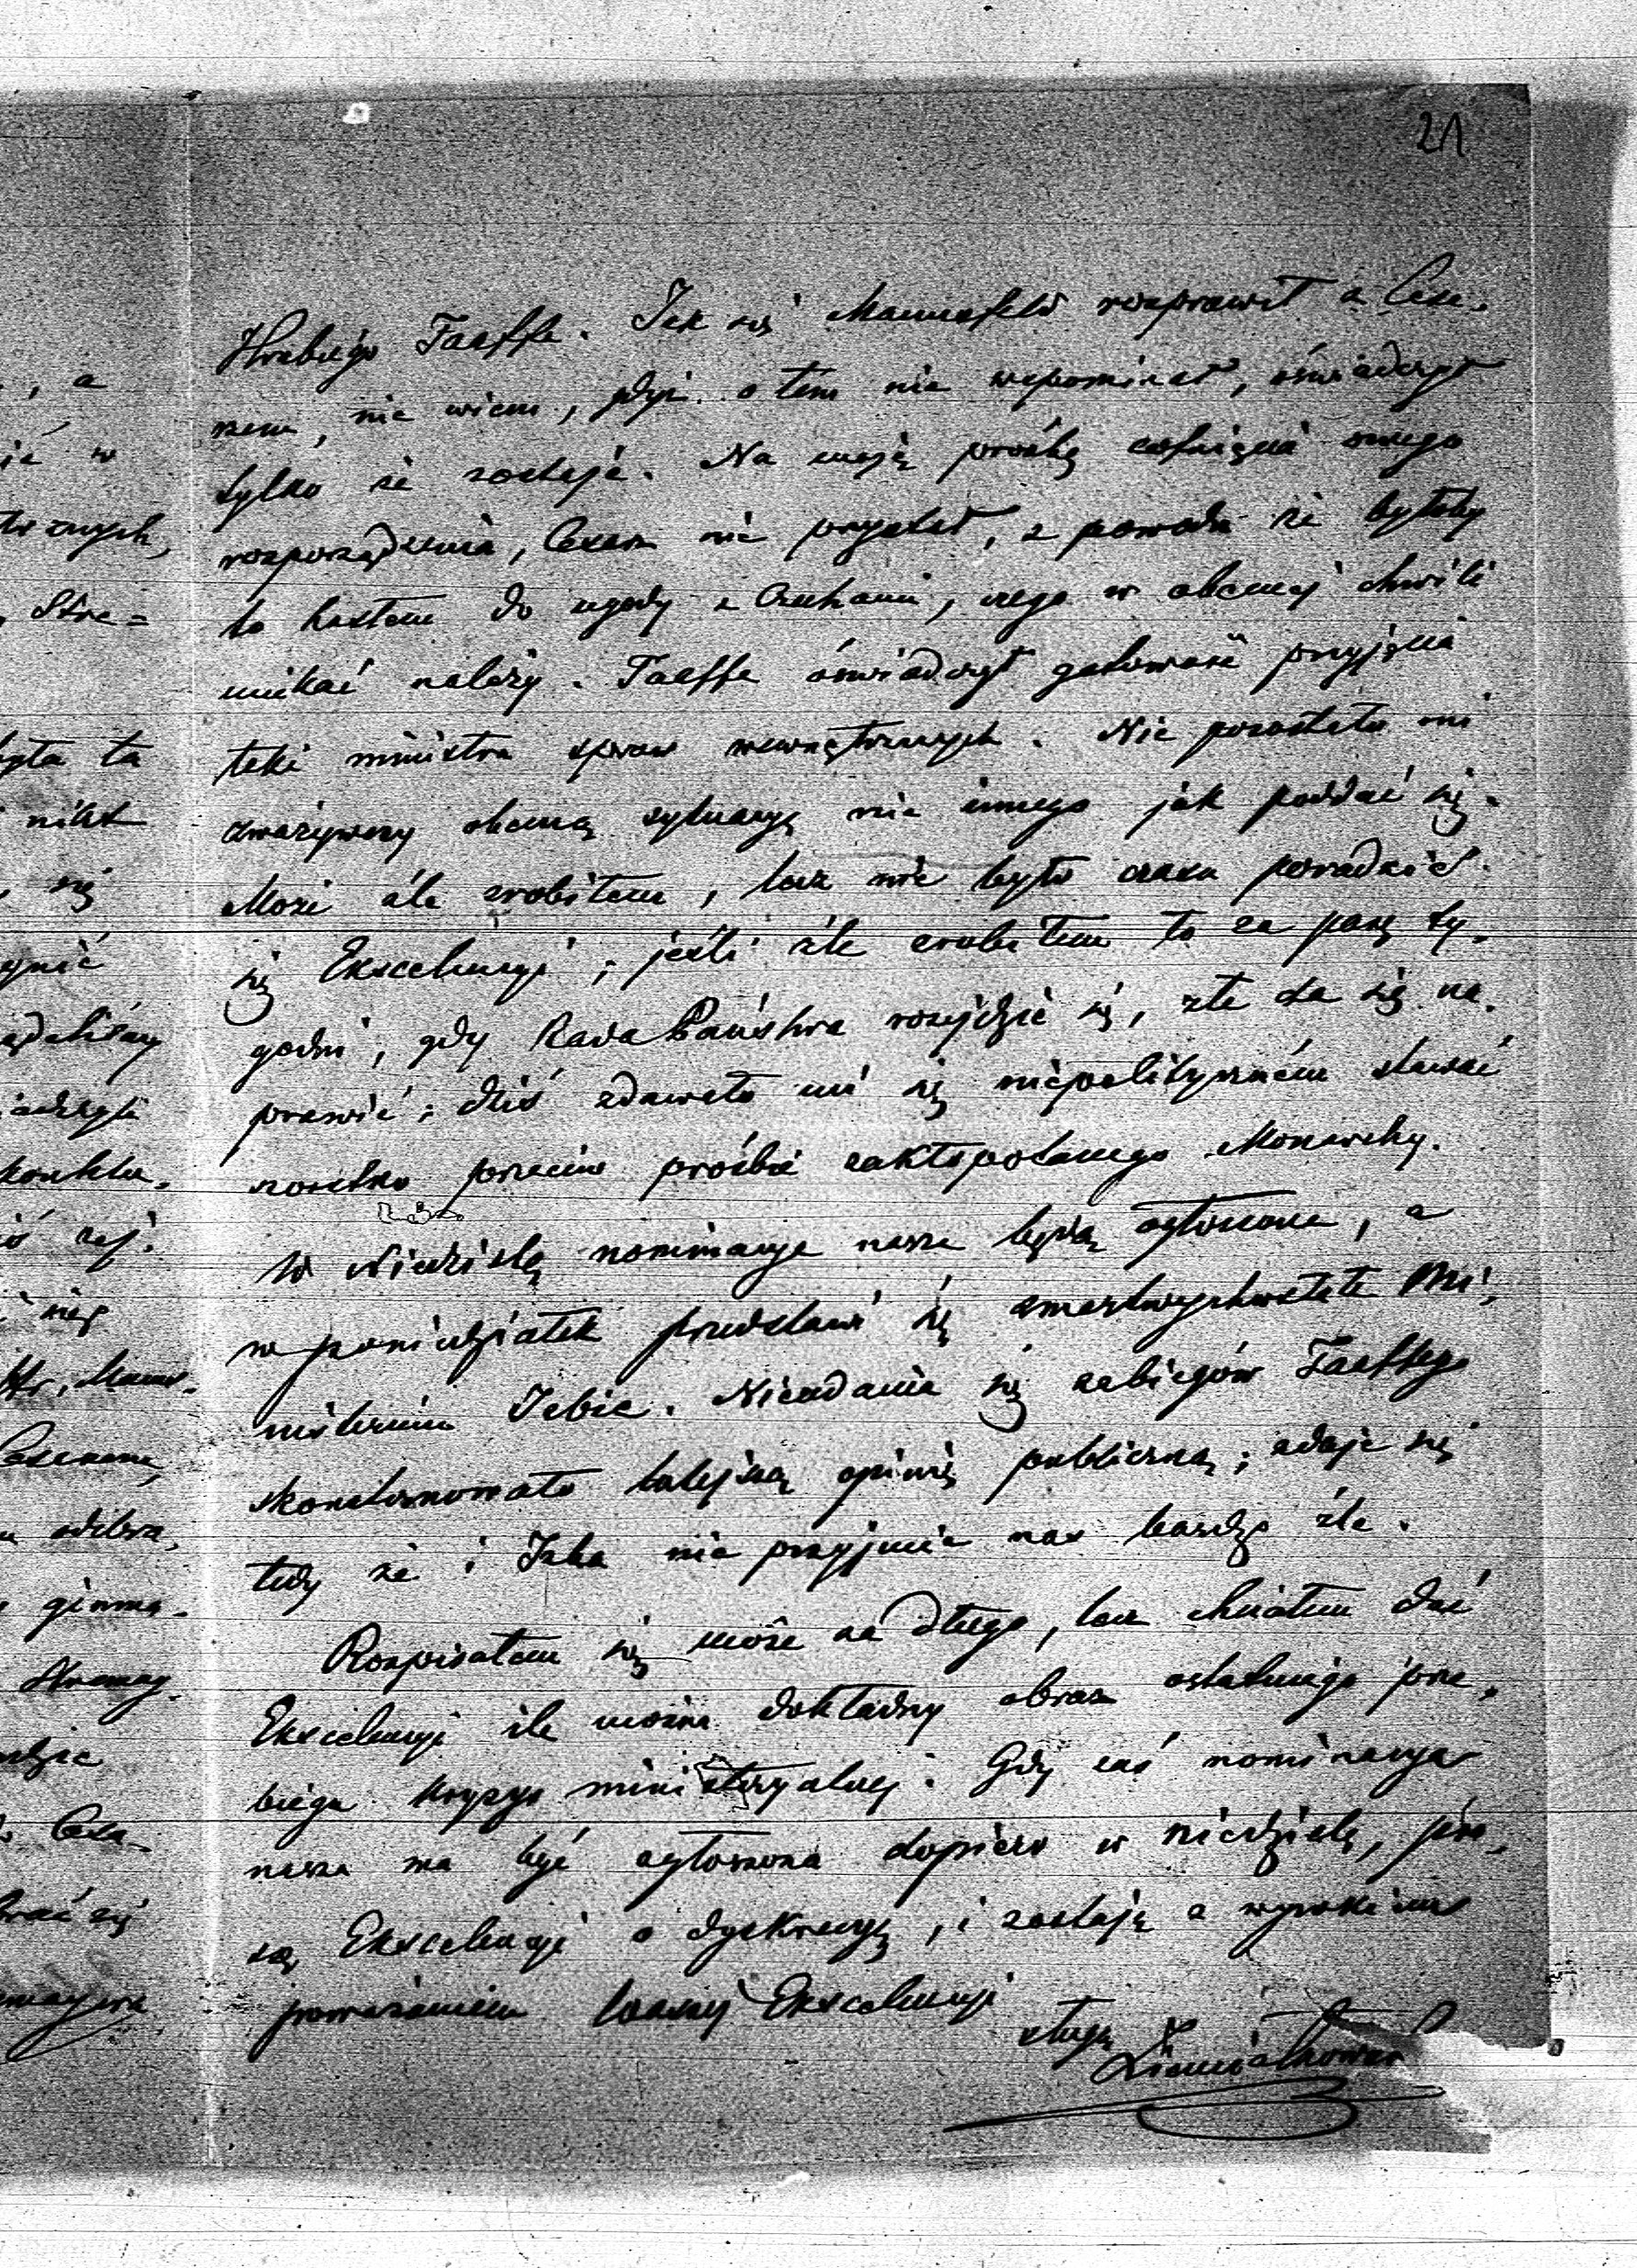 21
Hrabiego Taaffe. Jak się Mannsfeld rozprawił z Cesa-
rzem, nie wiem, gdyż o tem nie wspominał, oświadczył
tylko że zostaje. Na moją prośbę cofnięcia mego
rozporządzenia, Cesarz nie przystał, z powodu że byłoby
to hasłem do ugody z Czechami, czego w obecnej chwili
unikać należy. Taaffe oświadczył gotowość przyjęcia
teki ministra spraw wewnętrznych. Nie pozostało mi
zważywszy obecną sytuacyę nic innego jak poddać się.
Może źle zrobiłem, lecz nie było czasu poradzić
się Ekscelencyi; jeśli źle zrobiłem to za parę ty-
godni, gdy Rada Państwa rozejdzie się, złe da się na-
prawić; dziś zdawało mi się niepolitycznem stawać
szorstko przeciw prośbie zakłopotanego Monarchy.
W Niedzielę nominacye nasze będą ogłoszone, a
w poniedziałek przedstawi się zmartwychwstałe Mi-
nisterium Izbie. Nieudanie się zabiegów Taaffego
skonsternowało tutejszą opinię publiczną; zdaje się
tedy że i Izba nie przyjmie nas bardzo źle.
Rozpisałem się może za długo, lecz chciałem dać
Ekscelencyi ile można dokładny obraz ostatniego prze-
biegu kryzys ministeryalnej. Gdy zaś nominacya
nasza ma być ogłoszona dopiero w niedzielę, pro-
szę Ekscelencyi o dyskrecyę, i zostaję z wysokiem
poważaniem Waszej Ekscelencyi
sługą
Ziemiałkowski
, a
ić w
trznych,
Stre=
była ta
nikt
się
ynić
ądaliśmy
się
Hr. Manns-
Cesarzem,
Stremay-
Cesa-
brać się